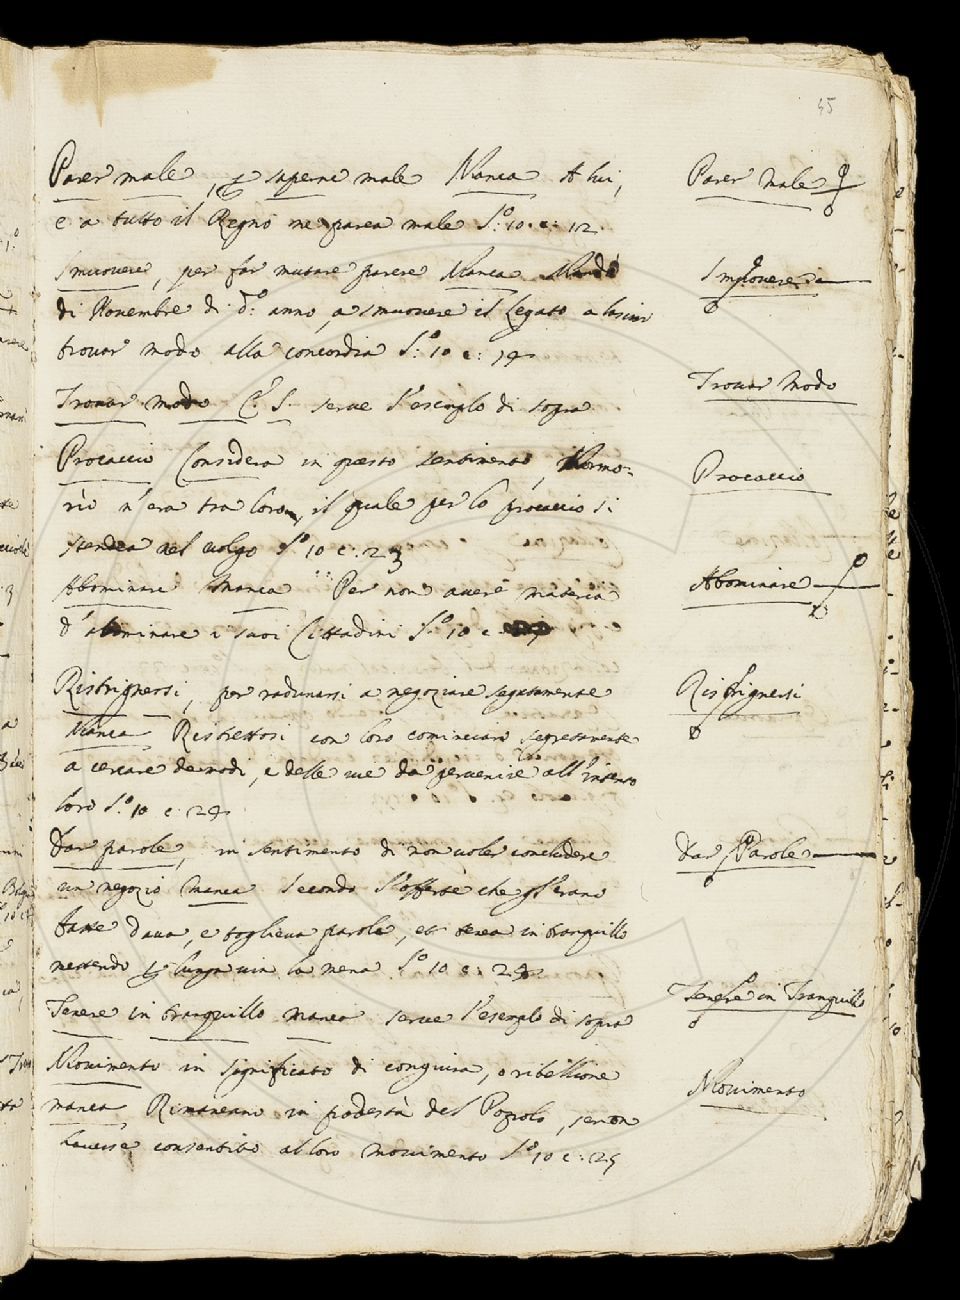 45
Parer male, p saperne male Manca A lui,
e a tutto il Regno ne parea male S:o 10. c: 12.
Smuovere, per far mutare parere Manca Mandò
di Novembre di d:o anno, a smuovere il Legato a lasciar
trovar modo alla concordia S:o 10 c: 14
Trovar modo C. S. serve l'esemplo di sopra
Procaccio Considera in questo sentimento, Mormo-
rìo n'era tra loro, il quale per lo procaccio si
stendea nel volgo S:o 10 c: 23
Abominare Manca Per non avere materia
d'abominare i suoi Cittadini S:o 10 c:
Ristrignersi, per radunarsi a negoziare segretamente
Manca Ristrettosi con loro cominciaro segretamente
a cercare de modi, e delle vie da pervenire all'intento
loro S:o 10 c: 24
Dar parole, in sentimento di non voler concludere
un negozio Manca Secondo l'offerte che gl'erano
fatte dava, e toglieva parole, et tenea in tranquillo
mettendo p lunga via la mena S:o 10 c: 24
Tenere in tranquillo manca serve l'esemplo di sopra
Movimento in significato di congiura, o ribellione
manca Rimaneano in podestà del Popolo, se non
havesse consentito al loro movimento S:o 10 c: 25
Parer Male
Smuovere
Trovar Modo
Procaccio
Abominare
Ristrignersi
Dar Parole
Tenere in Tranquillo
Movimento